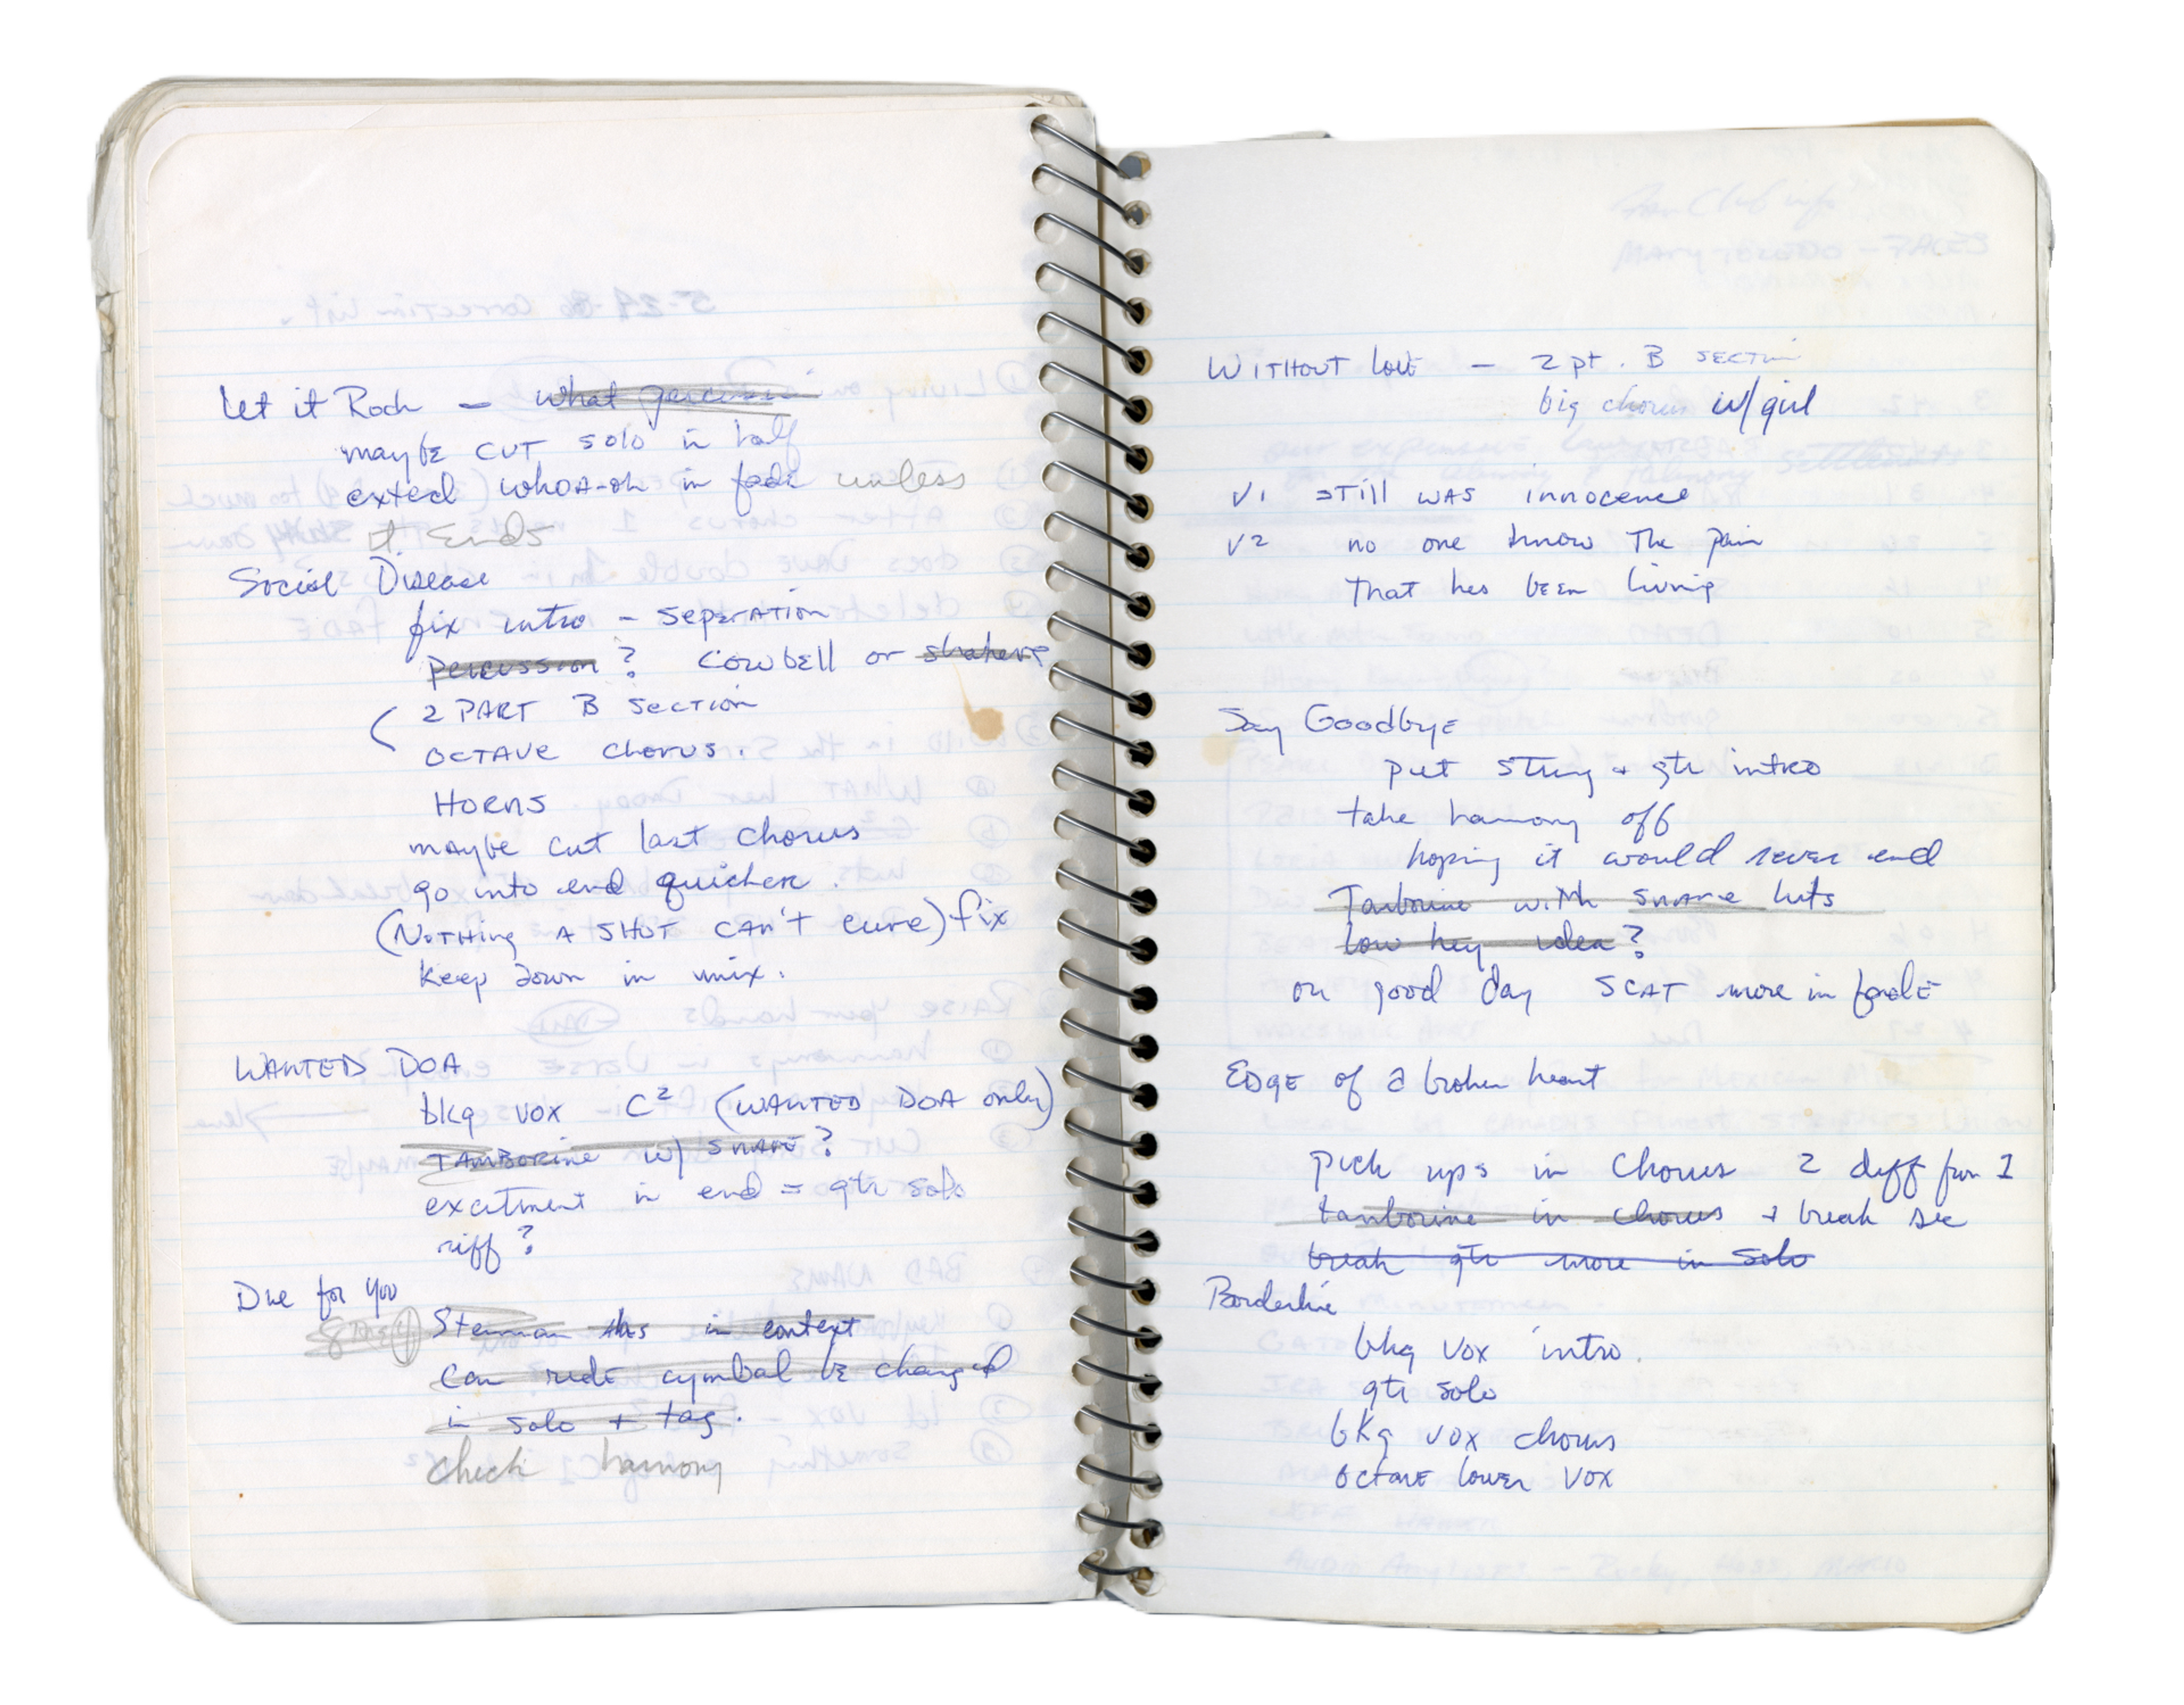 Let it Rock — What percussion
maybe CUT solo in half
exted whoa-oh in fade unless
it Ends
Social Disease
fix intro - seperation
percussion? cowbell or shakers
(2 PART B section
OCTAVE chorus.
HORNS
maybe cut last chorus
go into end quicker.
(Nothing A SHOT CAN'T cure) fix
keep down in mix.
WANTED DOA
bkg vox C² (WANTED DOA only)
TAMBORINE w/ snare?
excitment in end = gtr solo
riff?
Die for you
in context
Can ride cymbal be changed
in solo + tag.
check harmony
WITHOUT love — 2 pt. B section
big chorus w/ girl
V1 still was innocence
V2 no one know The pain
That hes been living
Say Goodbye
put string + gtr intro
take harmony off
hoping it would never end
Tamborine with snare hits
low key idea?
on good day SCAT more in fade
EDGE of a broken heart
pick ups in Chorus 2 diff from 1
tamborine in chorus + break sec
break gtr more in solo
Borderline
bkg vox intro.
gtr solo
bkg vox chorus
octave lower vox